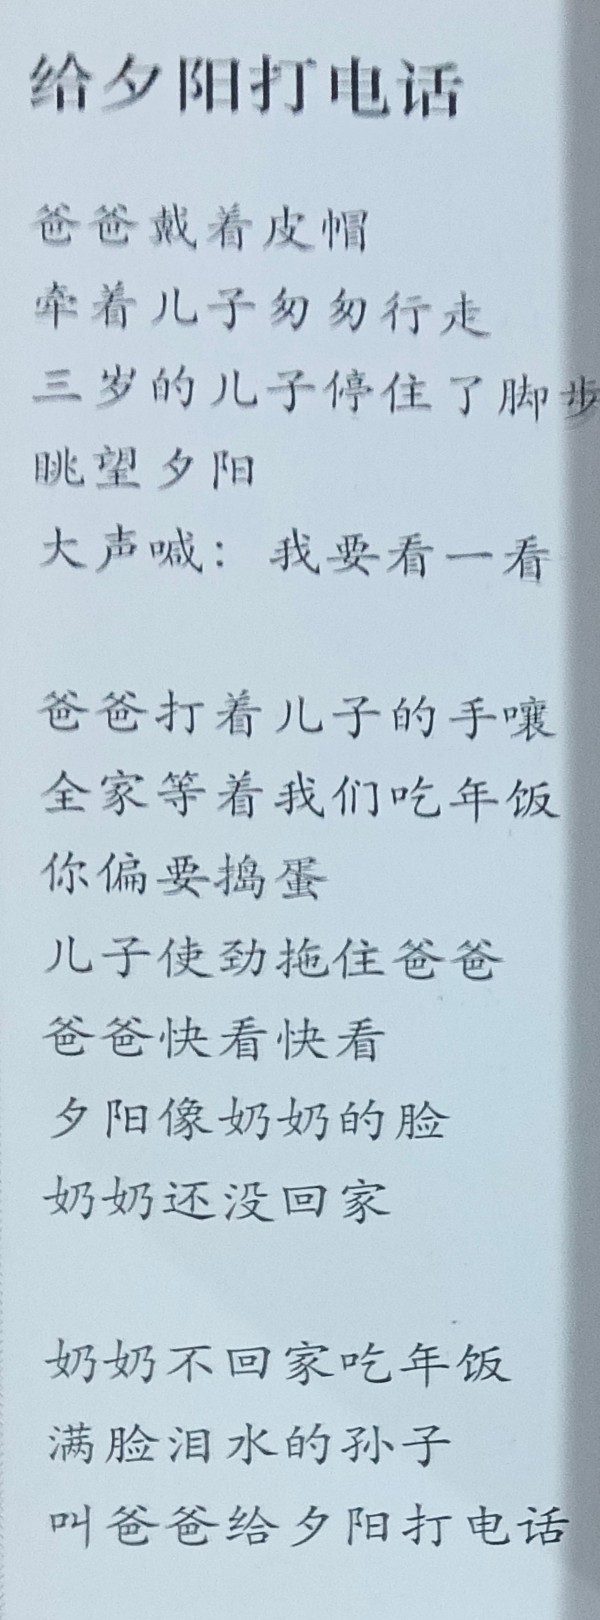 给夕阳打电话
爸爸戴着皮帽
牵着儿子匆匆行走
三岁的儿子停住了脚步
眺望夕阳
大声喊：我要看一看
爸爸打着儿子的手嚷
全家等着我们吃年饭
你偏要捣蛋
儿子使劲拖住爸爸
爸爸快看快看
夕阳像奶奶的脸
奶奶还没回家
奶奶不回家吃年饭
满脸泪水的孙子
叫爸爸给夕阳打电话